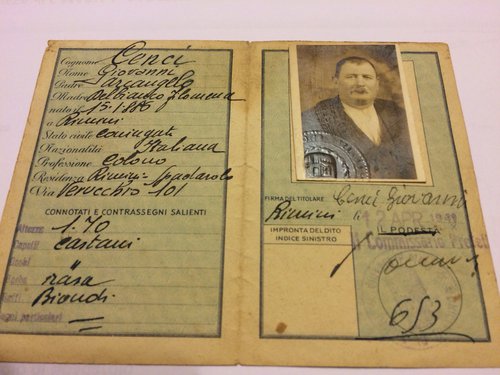 Cognome Cenci
Nome Giovanni
Padre Arcangelo
Madre Filomena
nato il 15.1.886
a Rimini
Stato civile coniugato
Nazionalità Italiana
Professione Colono
Residenza Rimini Spadarolo
Via Verucchio 101
CONNOTATI E CONTRASSEGNI SALIENTI
1.70
Capelli Castani
Occhi "
rasa
Baffi Biondi
segni particolari =
FIRMA DEL TITOLARE Cenci Giovanni
Rimini li 12 APR.
IMPRONTA DEL DITO
INDICE SINISTRO
IL PODESTÀ
Il Commissario
653